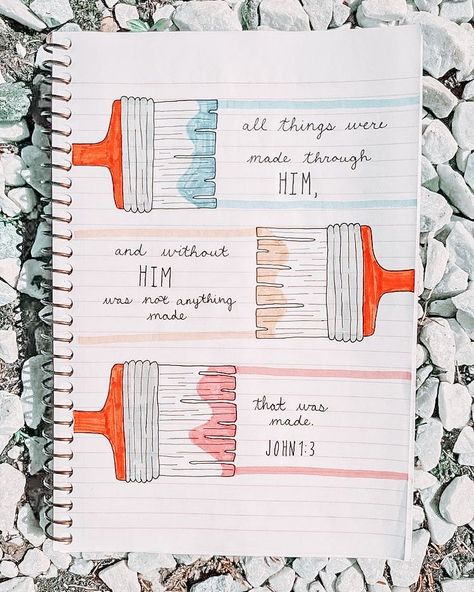 all things were
made through
HIM,
and without
HIM
was not anything
made
that was
made.
JOHN 1:3